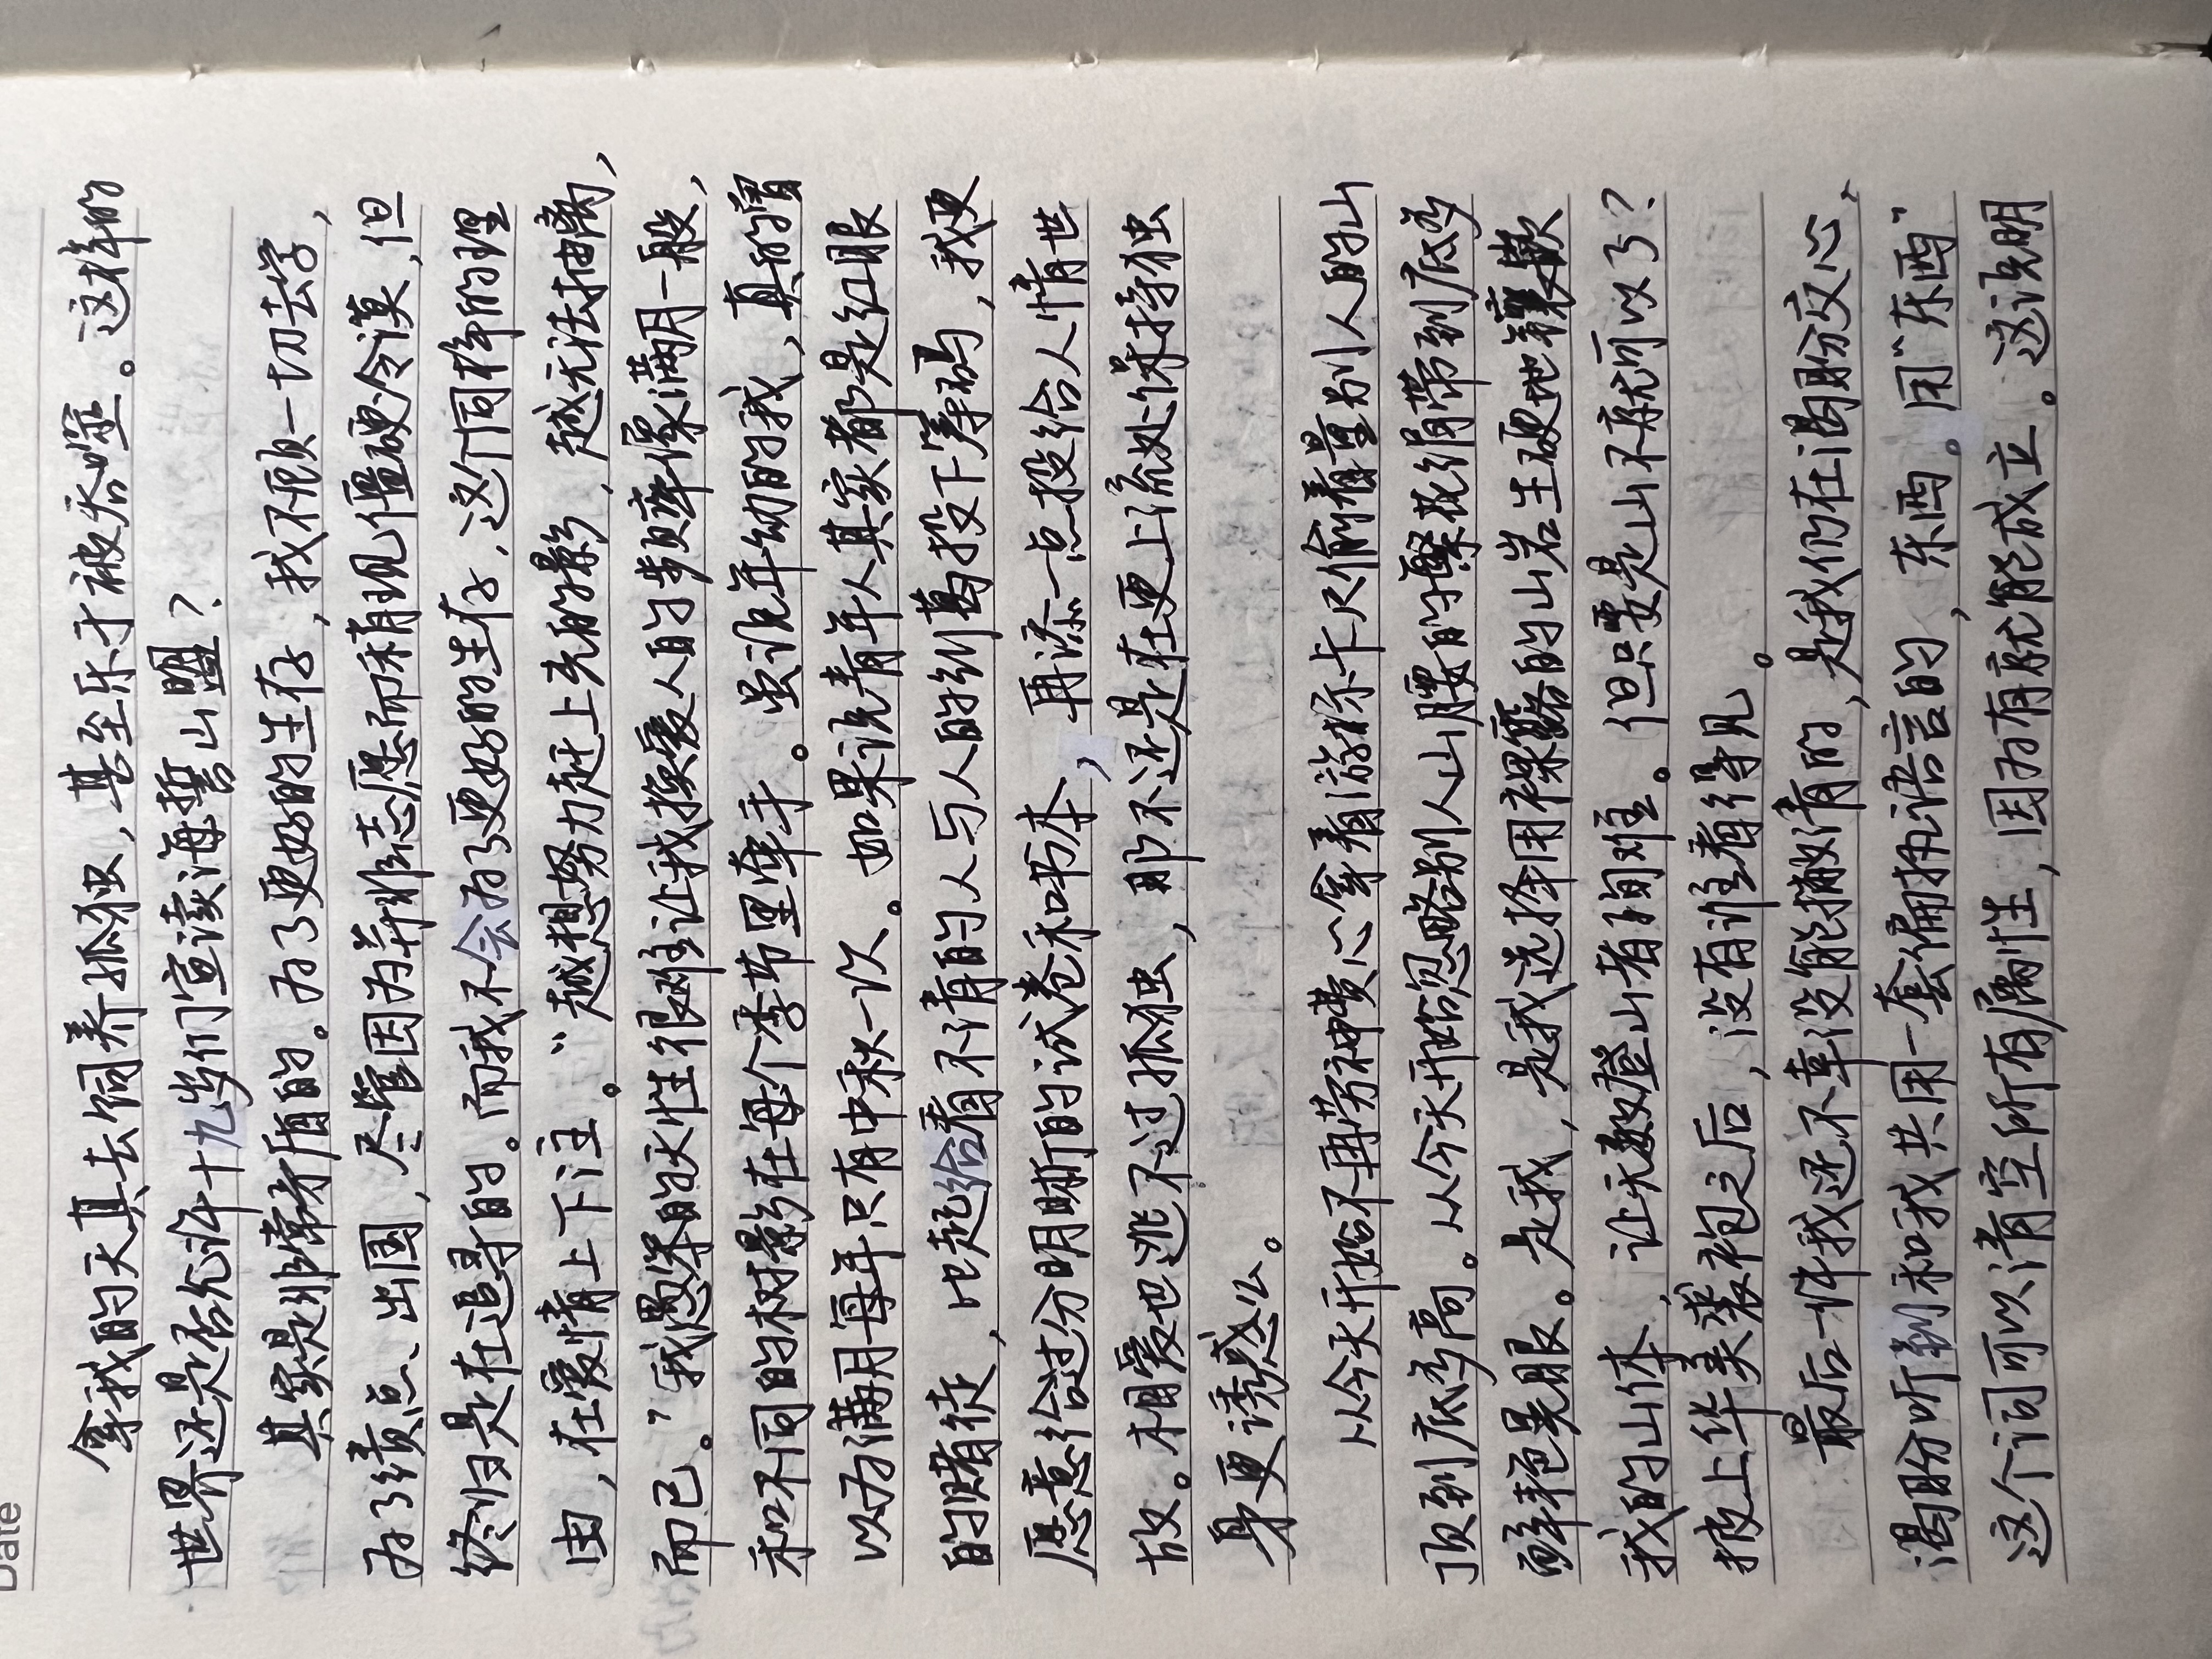 Date
拿我的天真去饲养孤独，甚至乐于被吞噬。这样的
世界还是否允许十九岁们宣读海誓山盟？
其实是非常矛盾的。为了更好的生存，我不顾一切去学，
为了绩点、出国，尽管因为并非志愿而稍现僵硬冷漠，但
终归是在追寻的。而我不会为了更好的生存，这个同样的理
由，在爱情上下注。“越想努力赶上光的影，越无法抽离，
而已。”我愚笨的天性很难让我换爱人的频率像满月一般，
和不同的树影在每个季节里牵手。虽说年幼的我，真的曾
以为满月每年只有中秋一次。如果说青年人其实都是红眼
的赌徒，比起给看不清的人与人的纠葛投下筹码，我更
愿意给过分明晰的试卷和书本，再添一点投给人情世
故。相爱也逃不过孤独，那不还是在更上流处保持独
身更诱惑么。
从今天开始不再劳神费心拿着游标卡尺偷着量别人的山
顶到底多高。从今天开始忽略别人山腰的繁花绢带到底多
鲜艳晃眼。是我，是我选择用裸露的山岩生硬地镶嵌
我的山体，让无数登山者殉难。但只要是山不就可以了？
披上华美裘袍之后，没有谁看得见。
最后一件我还不幸没能撇清的，是我仍在渴盼交心、
渴盼听到和我共用一套偏执语言的，东西。用“东西”
这个词可以清空所有属性，因为有就能成立。这说明